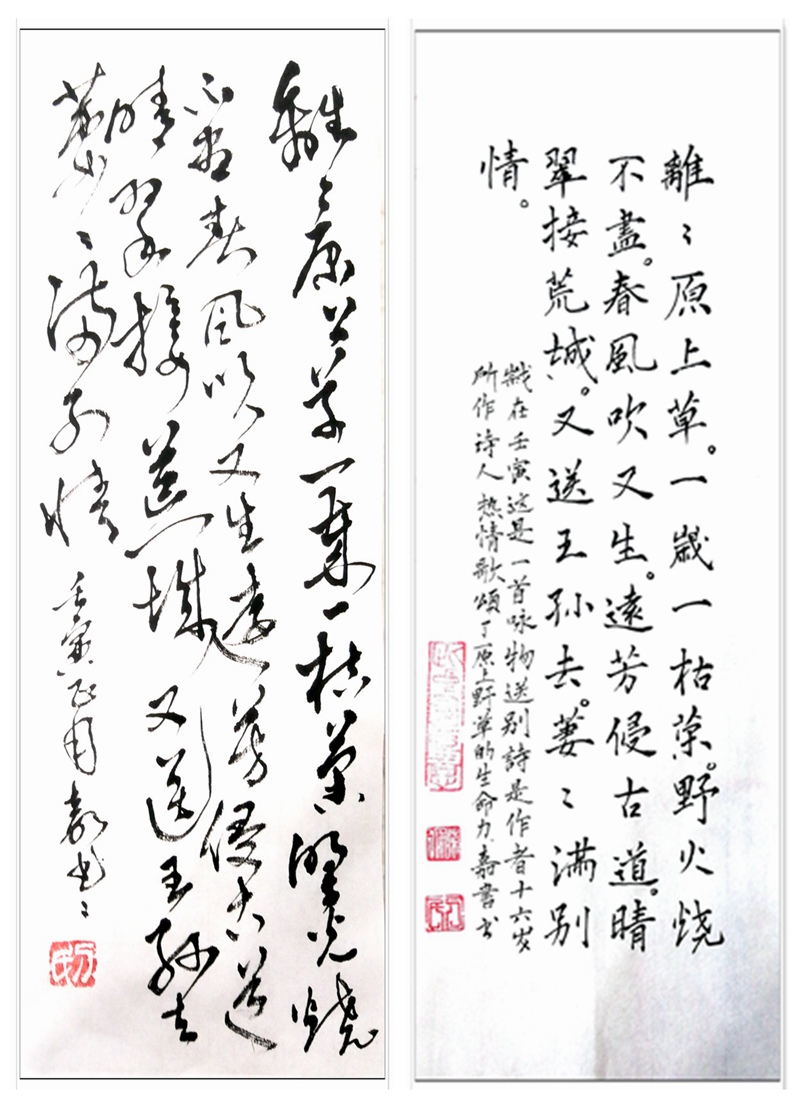 離〻原上草。一歲一枯荣。野火烧
不盡。春風吹又生。遠芳侵古道。晴
翠接荒城。又送王孙去。萋〻满别
情。
在壬寅这是一首咏物送别詩是作者十六岁
所作诗人热情歌頌了原上野草的生命力.嘉書书
離〻原上草一歲一枯荣野火燒
不盡春風吹又生遠芳侵古道
晴翠接荒城又送王孙去
萋〻满别情
壬寅正月